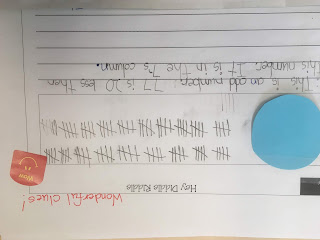 Wonderful clues!
Hey Diddle Riddle
WOW
This is an odd number. 77 is 20 less then
this number. It is in the 7's column.